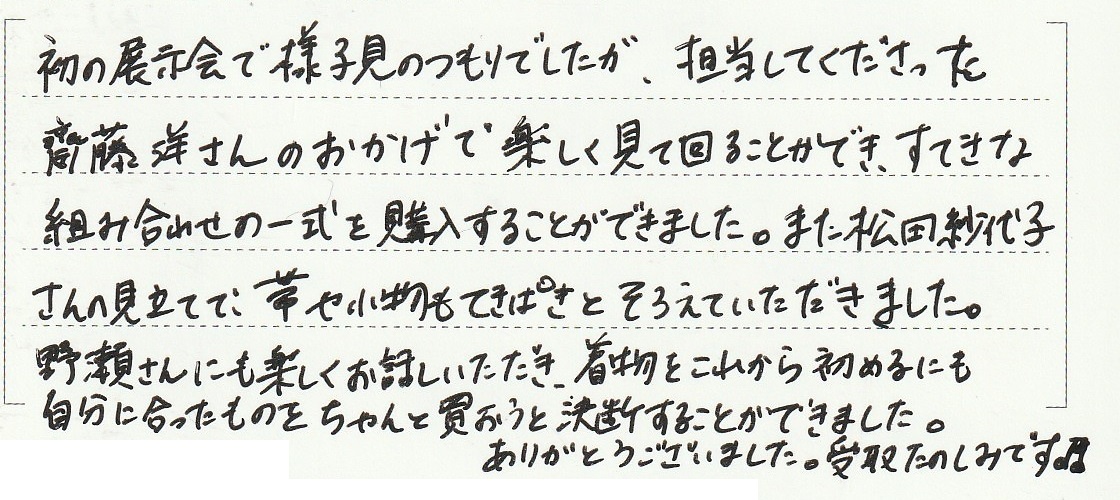 初の展示会で様子見のつもりでしたが、担当してくださった
齋藤洋さんのおかげで楽しく見て回ることができ、すてきな
組み合わせの一式を購入することができました。また松田紗代子
さんの見立てで、帯や小物もてきぱきとそろえていただきました。
野瀬さんにも楽しくお話しいただき、着物をこれから初めるにも
自分に合ったものをちゃんと買おうと決断することができました。
ありがとうございました。受取たのしみです♫